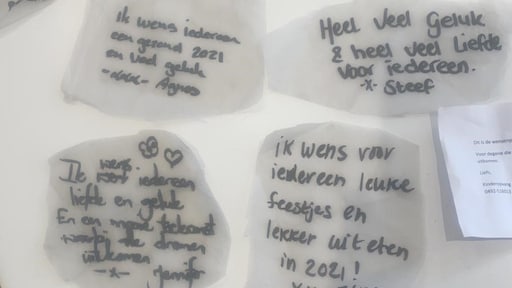 Ik wens iedereen
een gezond 2021
en veel geluk
-xxx- Agnes
Heel Veel Geluk
& heel veel Liefde
voor iedereen.
-x- Steef
Ik wens
iedereen
liefde en geluk
En een mooie toekomst
waarbij de dromen
uitkomen
-x- Jennifer
ik wens voor
iedereen leuke
feestjes en
lekker uit eten
in 2021!
Dit is de
Voor degene die
uitkomen.
Liefs,